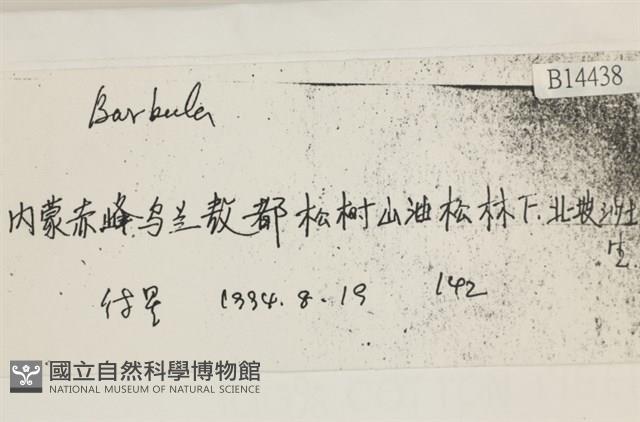 B14438
Barbula
内蒙赤峰乌兰敖都松树山油松林下.北坡沙土
生.
付星 1994.8.19 142
國立自然科學博物館
NATIONAL MUSEUM OF NATURAL SCIENCE